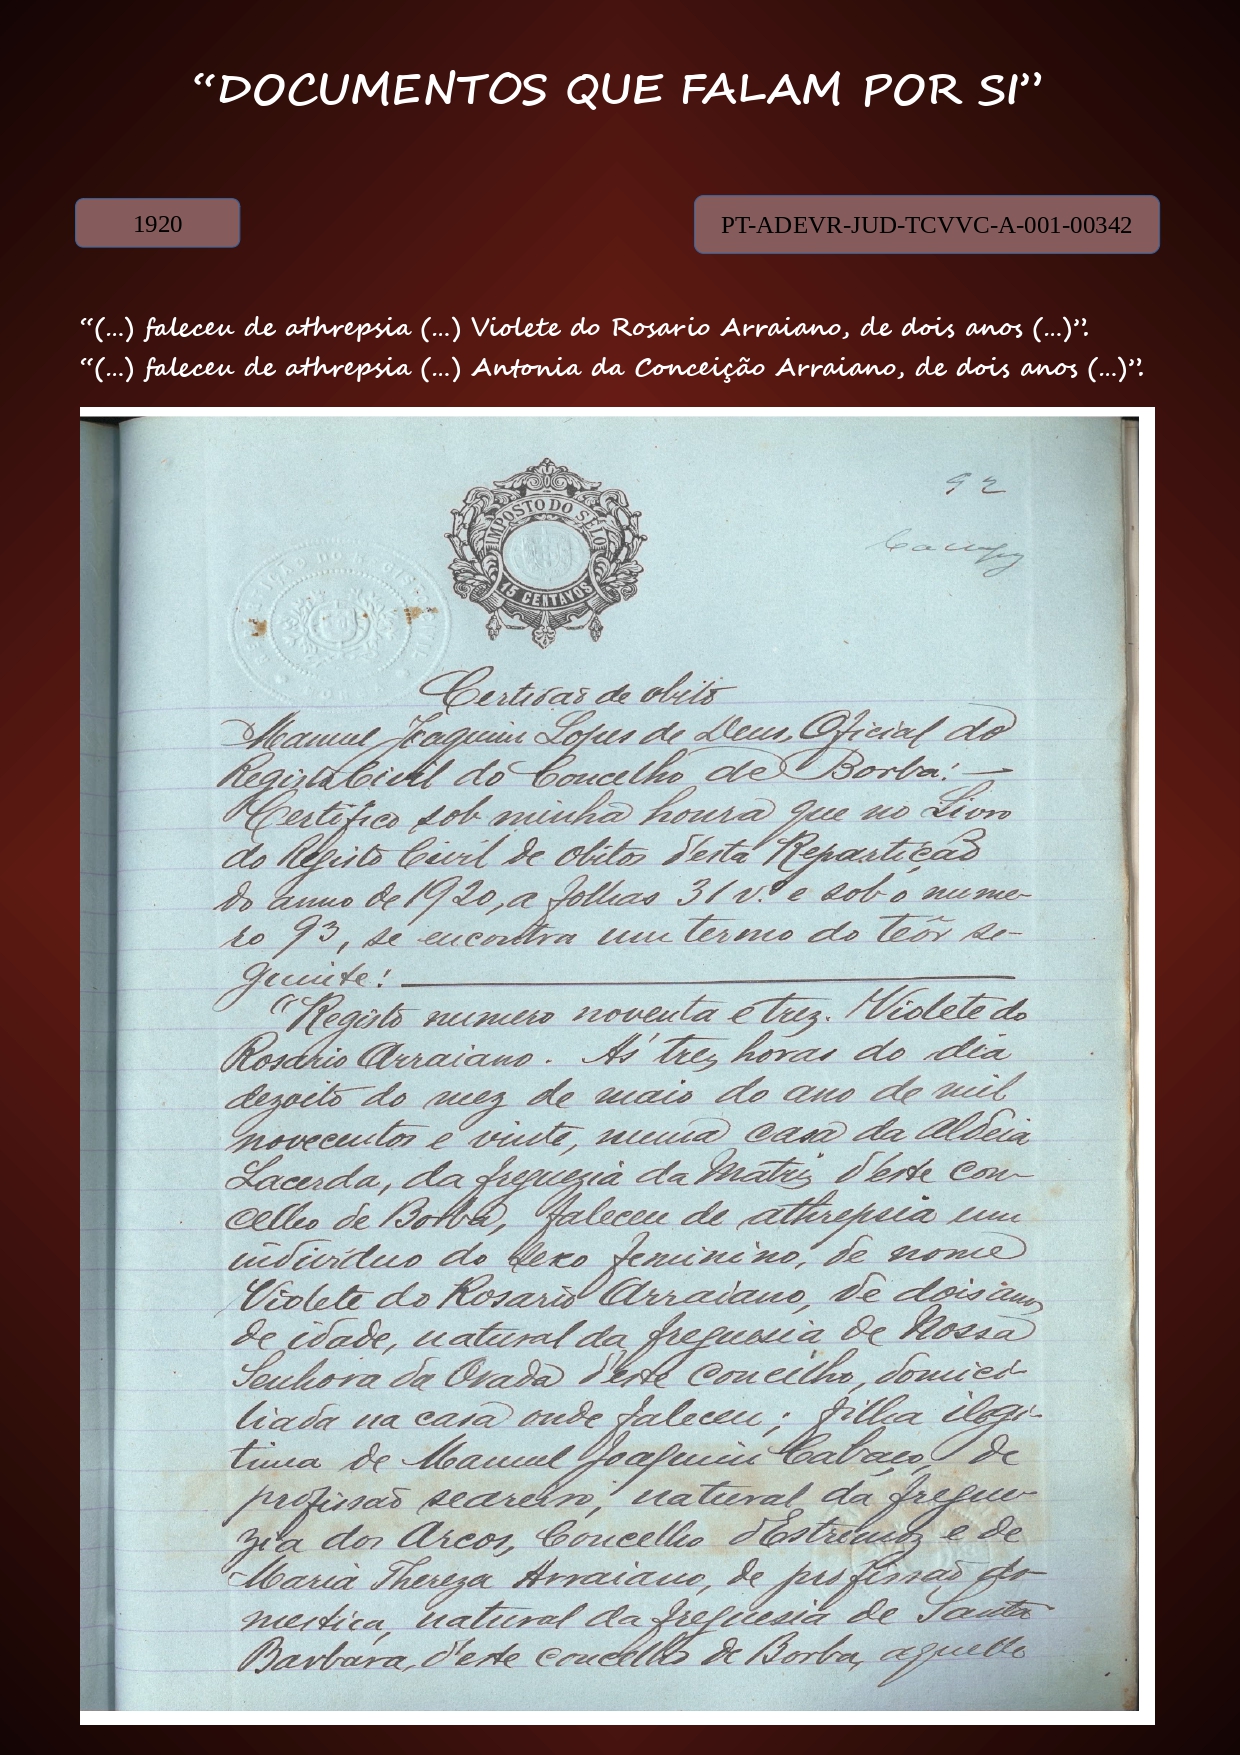 “DOCUMENTOS QUE FALAM POR SI”
1920
PT-ADEVR-JUD-TCVVC-A-001-00342
“(...) faleceu de athrepsia (...) Violete do Rosario Arraiano, de dois anos (...)”.
“(...) faleceu de athrepsia (...) Antonia da Conceição Arraiano, de dois anos (...)”.
IMPOSTO DO SÊLO
15 CENTAVOS
92
Certidão de obito
Manuel Joaquim Lopes de Deus, Oficial do
Registo Civil do Concelho de Borba: —
Certifico sob minha honra que no Livro
do Registo Civil de obitos d'esta Repartição
do anno de 1920, a folhas 31 v.º e sob o nume-
ro 93, se encontra um termo do teôr se-
guinte:
“Registo numero noventa e trez. Violete do
Rosario Arraiano. Ás trez horas do dia
dezoito do mez de maio do ano de mil
novecentos e vinte, numa casa da aldeia
Lacerda, da freguezia da Matriz d'este con-
celho de Borba, faleceu de athrepsia um
individuo do sexo feminino, de nome
Violete do Rosario Arraiano, de dois anos
de idade, natural da freguesia de Nossa
Senhora da Orada d'este concelho, domici-
liada na casa onde faleceu; filha ilegi-
tima de Manuel Joaquim Cabaço, de
profissão seareiro, natural da fregue-
zia dos Arcos, Concelho d'Estremoz e de
Maria Thereza Arraiano, de profissão do-
mestica, natural da freguesia de Santa
Barbara, d'este concelho de Borba, aquelle